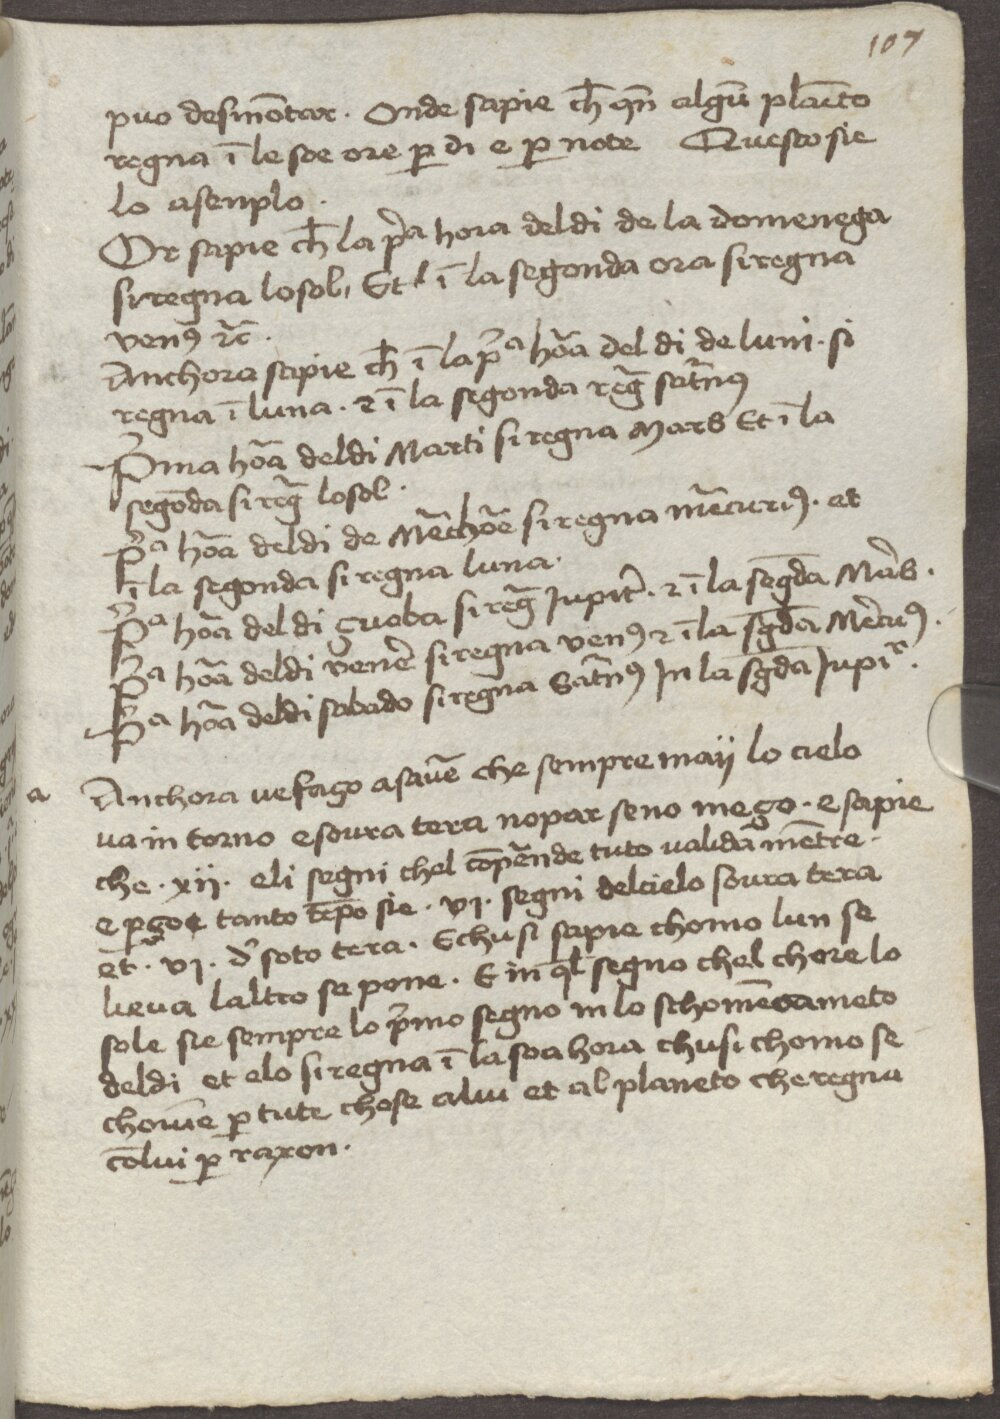 107
puo desmōtar. Onde sapie ch̄ qn̄ algū planīto
regna ī le soe ore p̱ di e p̱ note Questo sie
lo asenplo.
Or sapie ch̄ la p̄ͣ hora deldi de la domenega
si regna lo sol, Et ī la segonda ora si regna
venꝯ ⁊c̄.
Anchora sapie ch̄ ī la p̄ͣ hōa del di de luni. si
regna ī luna. ⁊ ī la segonda reḡ satr̄nꝯ
P̄ma hōa deldi Marti si regna Mars Et ī la
segōda si reḡ lo sol.
P̄ͣ hōa deldi de Mēchōe si regna m̄ecuriꝯ. et
ī la segonda si regna luna.
P̄ͣ hōa del di çuoba si reḡ Jupit̄. ⁊ ī la segd̄a Mārs.
P̄ͣ hōa deldi venē si regna venꝯ ⁊ ī la sgd̄a Mēcuꝯ.
P̄ͣ hōa deldi sabado si regna Satr̄nꝯ In la sgd̄a Jupiʳ.
a Anchora ve fago a savē che sempre maij lo cielo
va in torno e sovra tera no par se no meço. e sapie
che. xij. eli segni chel cōp̄ende tuto validām̄etre.
e p̱ço tanto tēpo sie. vi. segni delcielo sovra tera
et. vi. d̄ soto tera. E chusi sapie chomo lun se
lieva laltro se pone. E in ql̄ segno chel chore lo
sole sie sempre lo p̄mo segno in lo schomēçameto
deldi et elo si regna ī la soa hora chusi chomo se
chovīe p̱ tute chose a lui et al planeto che regna
cōlui p̱ raxon.